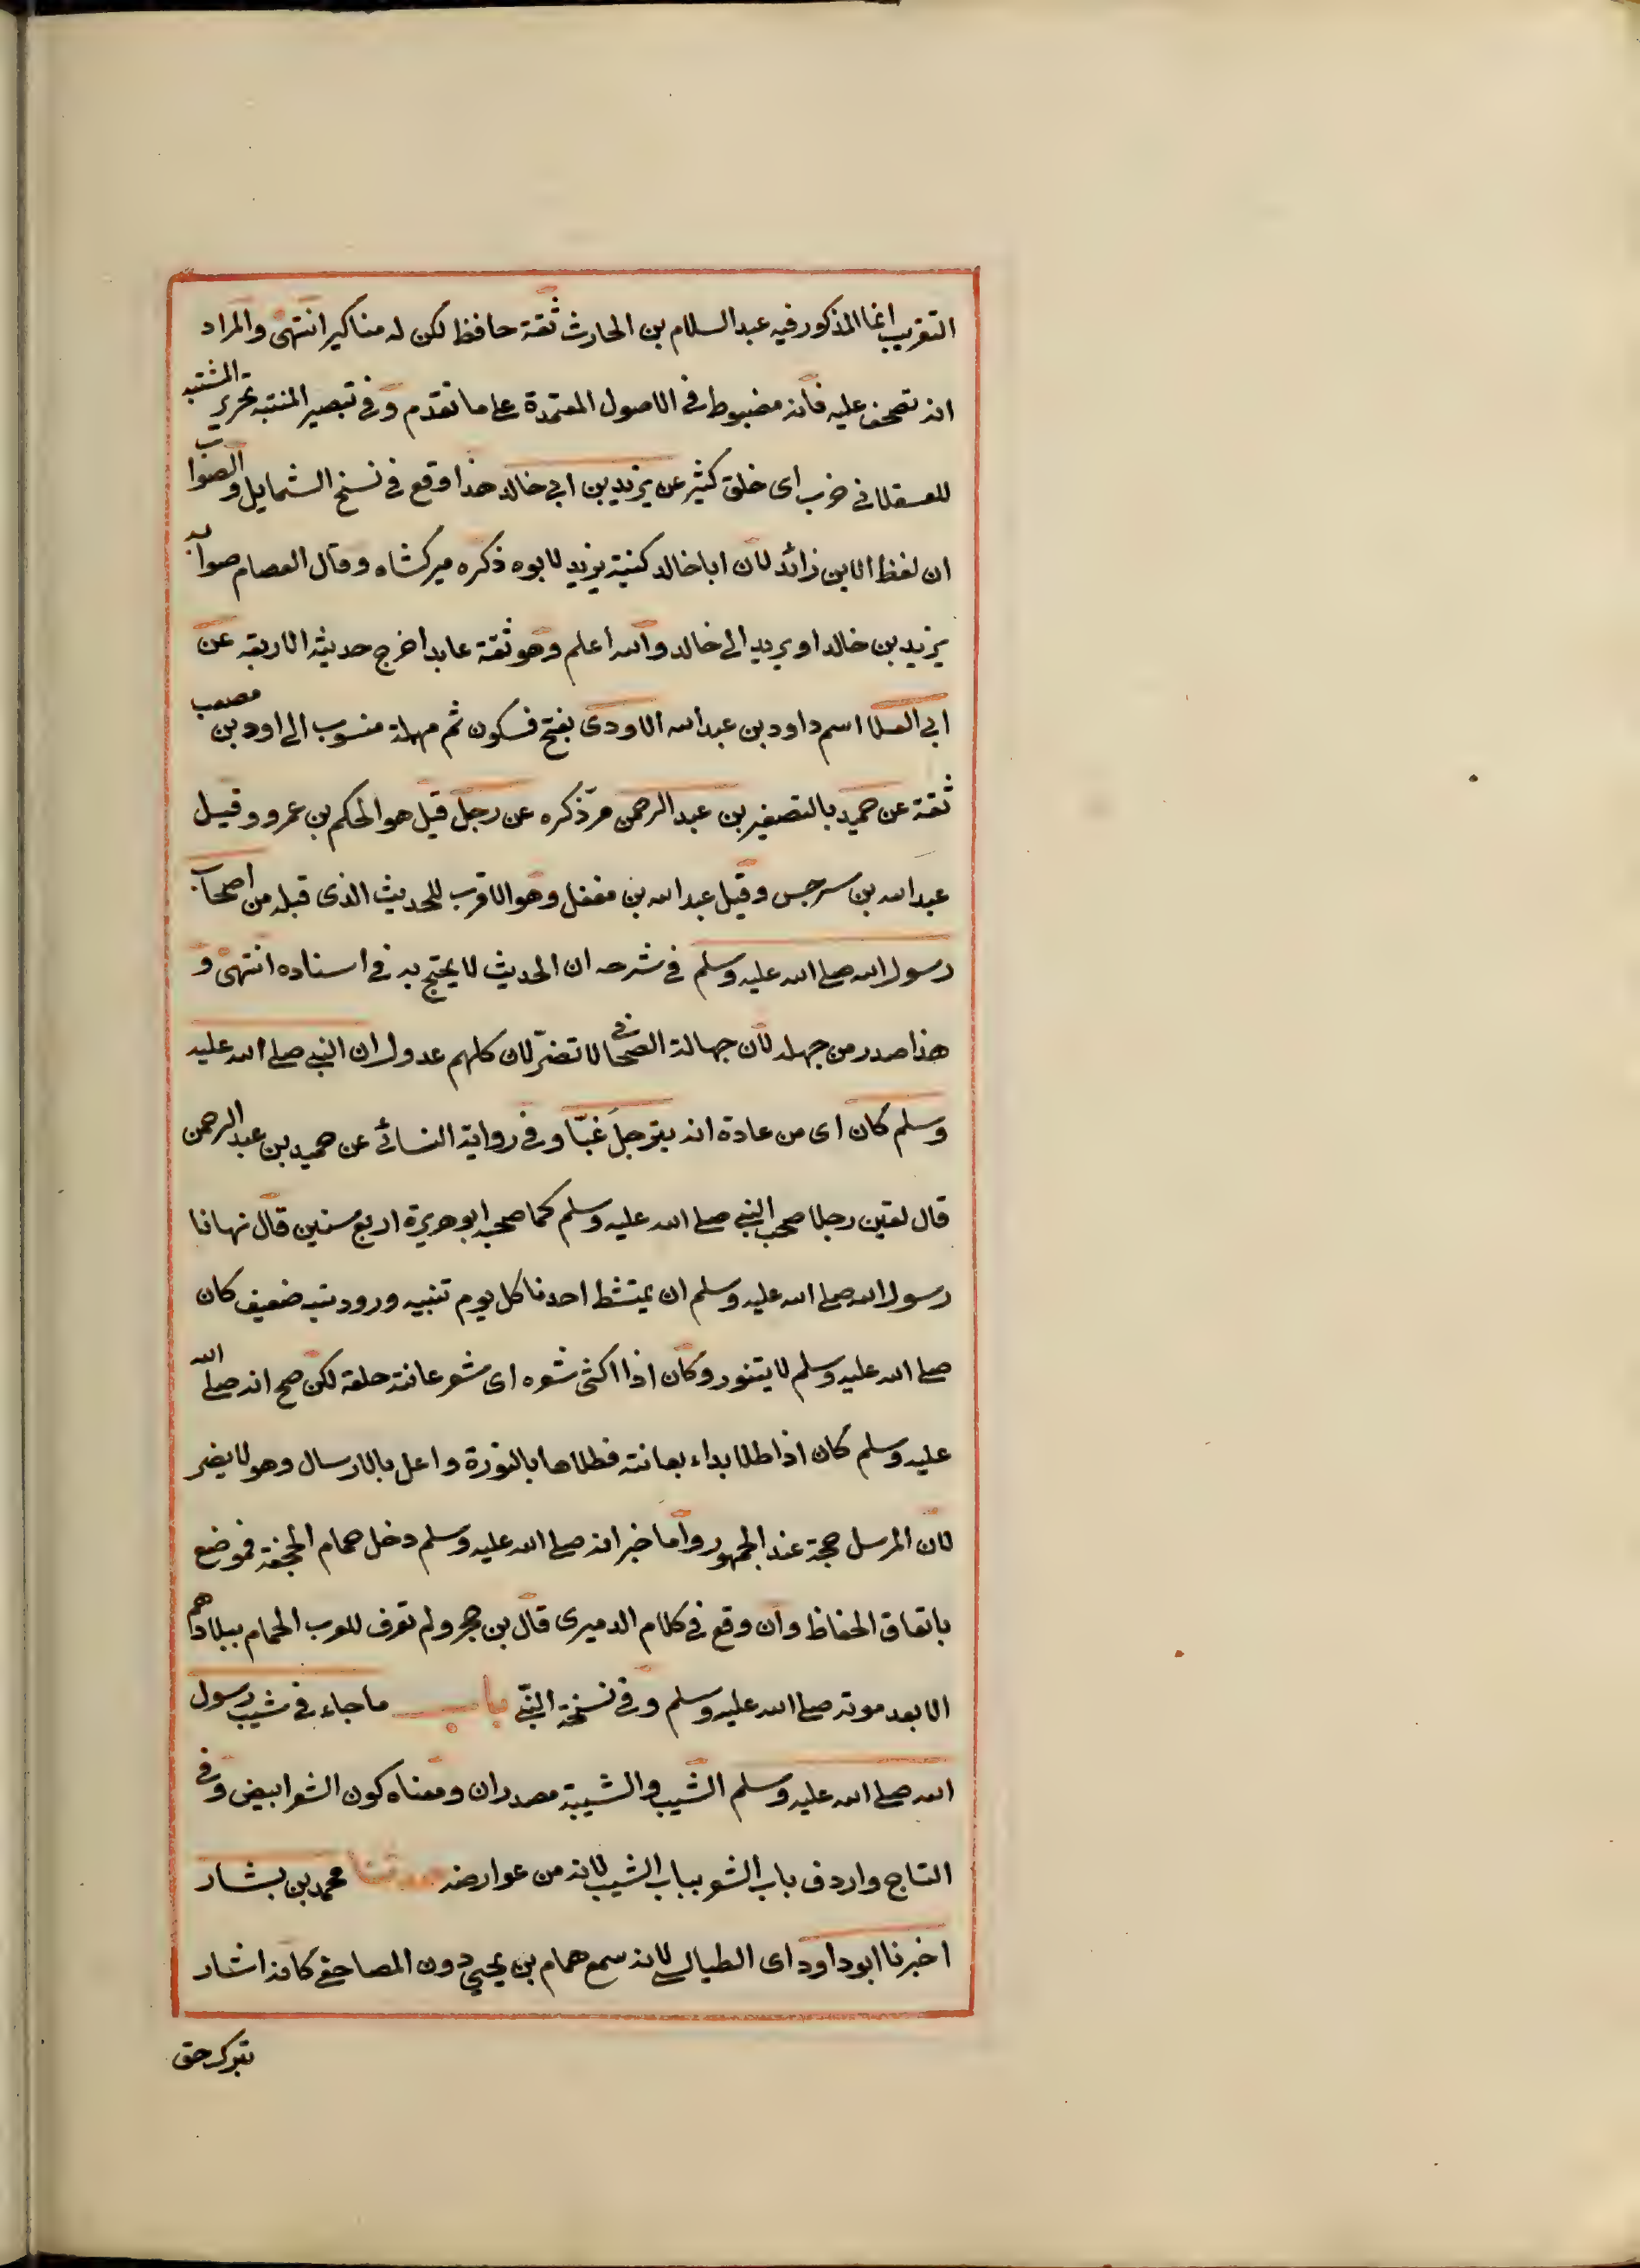 التقريب انما المذكور فيه عبد السلام بن الحارث ثقة حافظ لكن له مناكير انتهى والمراد
انه تصحف عليه فانه مضبوط في الاصول المعتمدة على ما تقدم وفي تبصير المنتبه بتحرير المشتبه
للعسقلاني حرب اى خلق كثير عن يزيد بن ابي خالد هذا وقع في نسخ الشمايل والصواب
ان لفظ الابن زائد لان ابا خالد كنية يزيد لا بوه ذكره ميركشاه وقال العصام صوابه
يزيد بن خالد او يريد الى خالد والله اعلم وهو ثقة عابد اخرج حديثه الاربعة عن
ابي العلا اسم داود بن عبد الله الاودى بفتح فسكون ثم مهملة منسوب الى اود بن مصعب
ثقة عن حميد بالتصغير بن عبد الرحمن مرّ ذكره عن رجل قيل هو الحكم بن عمرو وقيل
عبد الله بن سرجس وقيل عبد الله بن مغفل وهو الاقرب للحديث الذى قبله من اصحاب
رسول الله صلى الله عليه وسلم في شرحه ان الحديث لا يحتج به في اسناده انتهى و
هذا صدر من جهله لان جهالة الصحابى لا تضرّ لان كلهم عدول ان النبي صلى الله عليه
وسلم كان اى من عادة انه يترجل غبّا وفي رواية النسائى عن حميد بن عبد الرحمن
قال لقين رجلا صحب النبي صلى الله عليه وسلم كما صحبه ابو هريرة اربع سنين قال نهانا
رسول الله صلى الله عليه وسلم ان يمتشط احدنا كل يوم تنبيه ورود بسند ضعيف كان
صلى الله عليه وسلم لا يتنور وكان اذا اكثى شعره اى شعر عانته حلقه لكن صح انه صلى الله
عليه وسلم كان اذا طلا بداء بعانته فطلاها بالنورة واعل بالارسال وهو لا يضر
لان المرسل حجة عند الجمهور واما خبر انه صلى الله عليه وسلم دخل حمام الجحفة فموضع
باتفاق الحفاظ وان وقع في كلام الدميرى قال بن حجر ولم تعرف للعرب الحمام ببلادهم
الا بعد موته صلى الله عليه وسلم وفي نسخة النبّي باب ما جاء في شيب رسول
الله صلى الله عليه وسلم الشيب والشيبة مصدران ومعناه كون الشعر ابيض وفى
التاج واردف باب الشعر بباب الشيب لانه من عوارضه حدثنا محمد بن بشار
اخبرنا ابو داود اى الطيالسى لانه سمع همام بن يحيى دون المصاحفى كانه اشار
بتوكـ حق